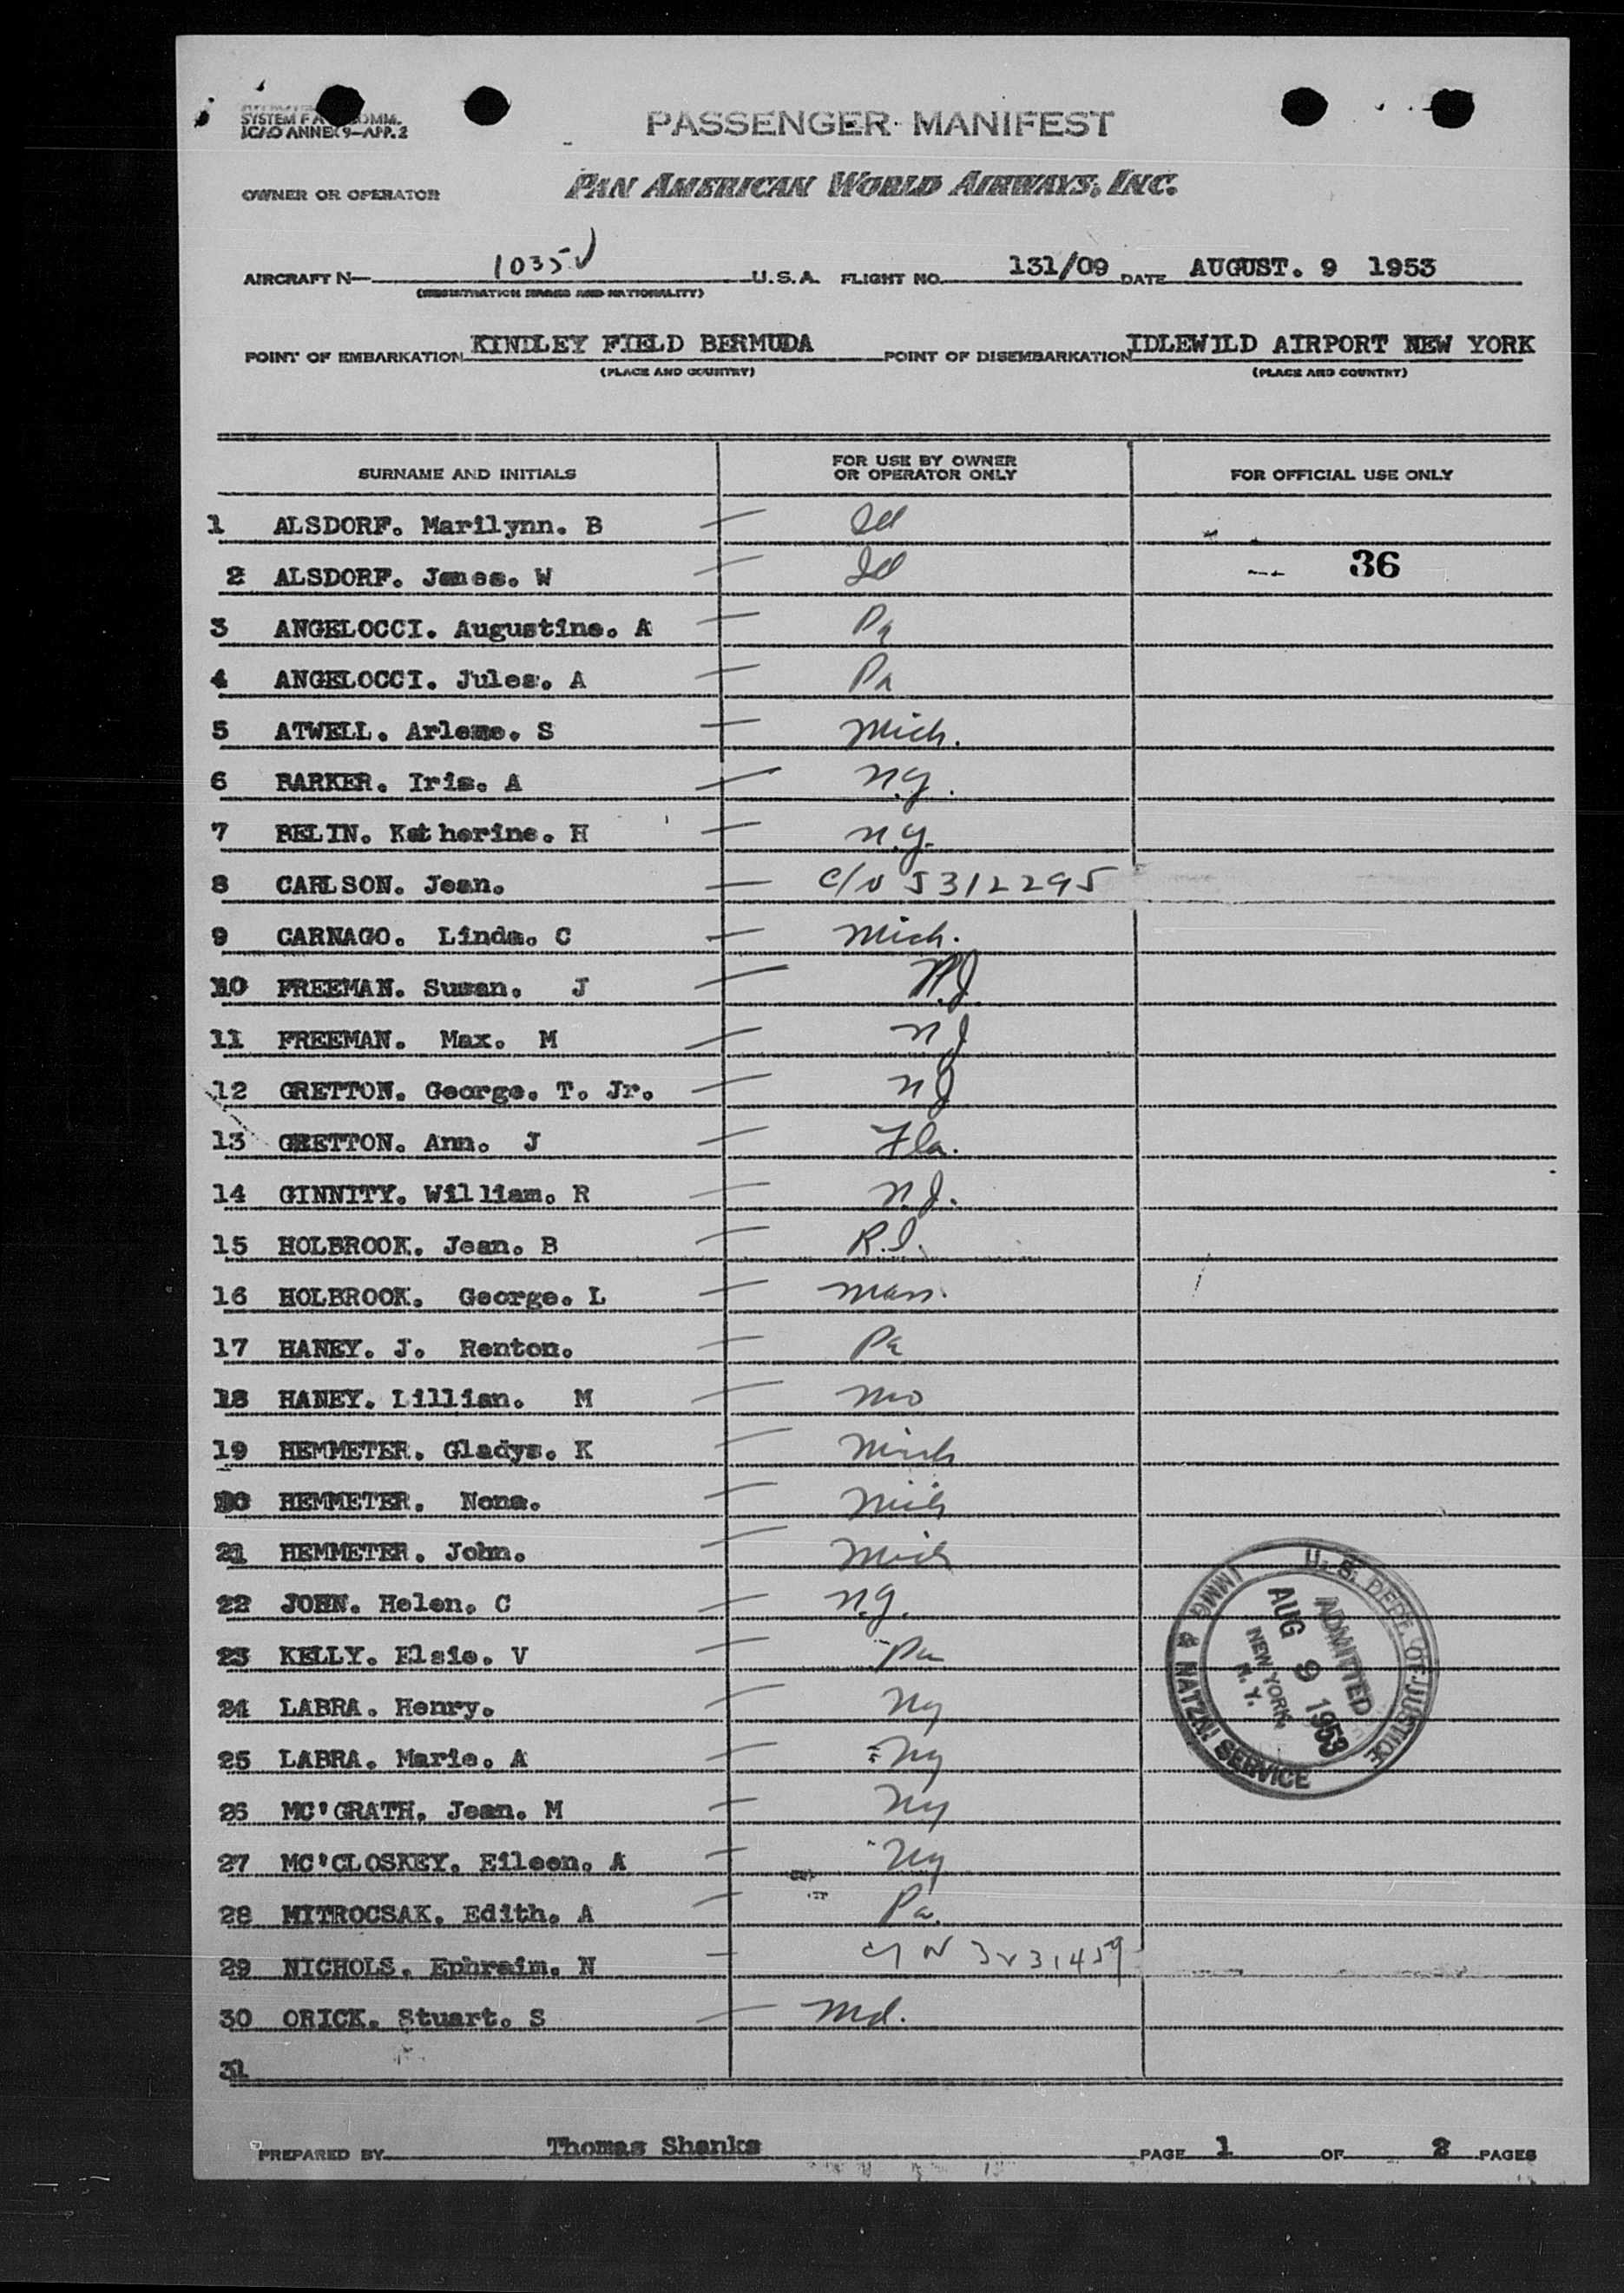 SYSTEM F A COMM.
ICAO ANNEX 9—APP. 2
PASSENGER MANIFEST
OWNER OR OPERATOR PAN AMERICAN WORLD AIRWAYS, INC.
AIRCRAFT N— 1035V U.S.A. FLIGHT NO. 131/09 DATE AUGUST. 9 1953
(REGISTRATION MARKS AND NATIONALITY)
POINT OF EMBARKATION KINDLEY FIELD BERMUDA POINT OF DISEMBARKATION IDLEWILD AIRPORT NEW YORK
(PLACE AND COUNTRY) (PLACE AND COUNTRY)
SURNAME AND INITIALS FOR USE BY OWNER OR OPERATOR ONLY FOR OFFICIAL USE ONLY
1 ALSDORF. Marilynn. B — Ill
2 ALSDORF. James. W — Ill 36
3 ANGELOCCI. Augustine. A — Pa
4 ANGELOCCI. Jules. A — Pa
5 ATWELL. Arlene. S — Mich.
6 BARKER. Iris. A — N.Y.
7 BELIN. Katherine. H — N.Y.
8 CARLSON. Jean. — C/N 5312295
9 CARNAGO. Linda. C — Mich.
10 FREEMAN. Susan. J — N.J.
11 FREEMAN. Max. M — NJ
12 GRETTON. George. T. Jr. — NJ
13 GRETTON. Ann. J — Fla.
14 GINNITY. William. R — N.J.
15 HOLBROOK. Jean. B — R.I.
16 HOLBROOK. George. L — Mass.
17 HANEY. J. Renton. — Pa
18 HANEY. Lillian. M — Mo
19 HEMMETER. Gladys. K — Mich
20 HEMMETER. Nona. — Mich
21 HEMMETER. John. — Mich
22 JOHN. Helen. C — N.Y.
23 KELLY. Elsie. V — Pa
24 LABRA. Henry. — Ny
25 LABRA. Marie. A — Ny
26 MC'GRATH. Jean. M — Ny
27 MC'CLOSKEY. Eileen. A — Ny
28 MITROCSAK. Edith. A — Pa.
29 NICHOLS. Ephraim. N — C/N
30 ORICK. Stuart. S — Md.
31
U. S. DEPT. OF JUSTICE
IMMIG & NATZN SERVICE
ADMITTED
AUG 9 1953
NEW YORK, N. Y.
PREPARED BY Thomas Shanks PAGE 1 OF 2 PAGES